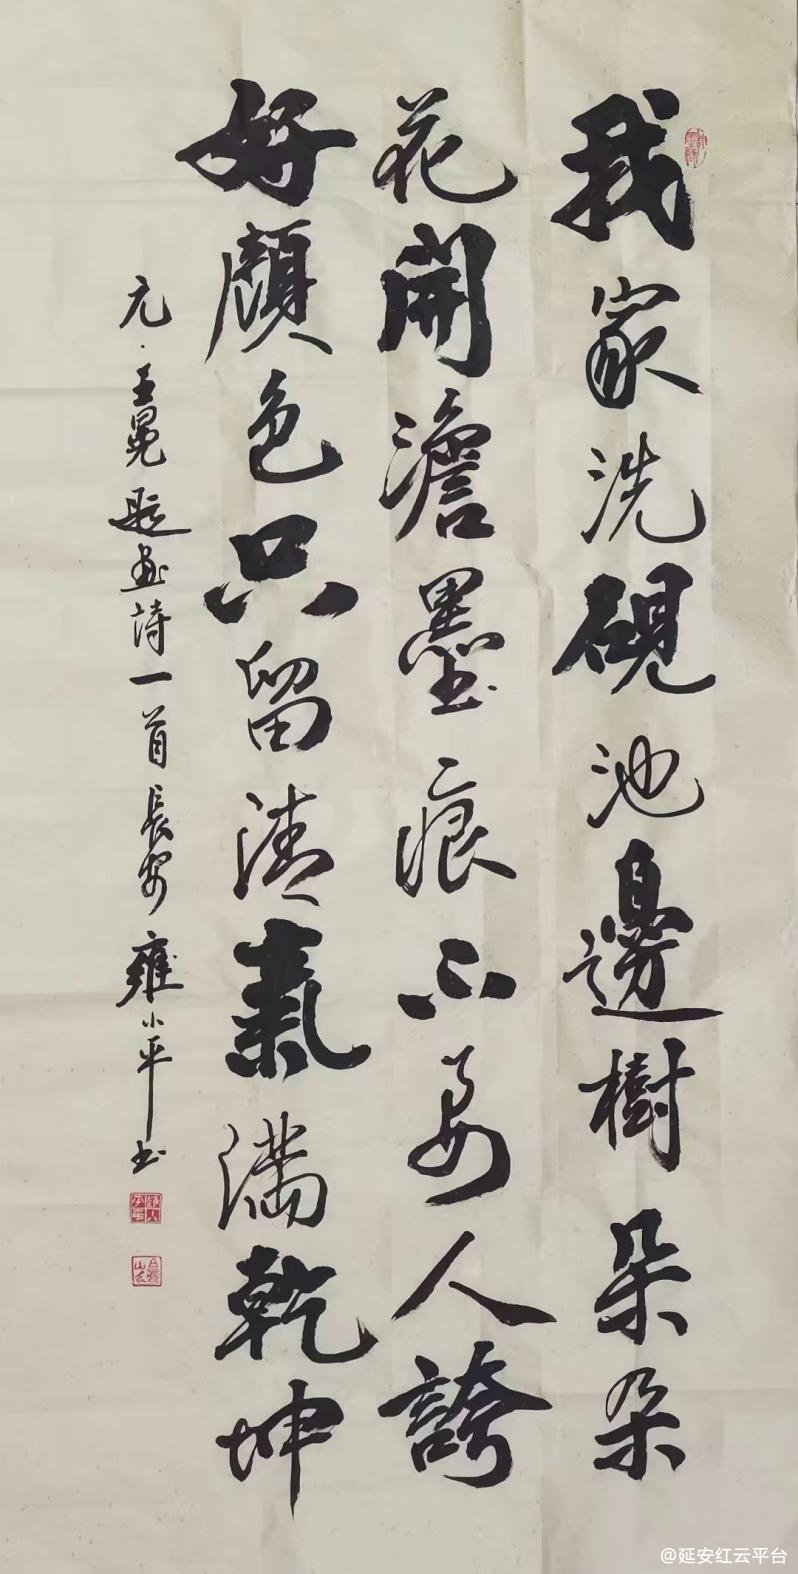 我家洗硯池邊樹朵朵
花開澹墨痕不要人誇
好顏色只留清氣滿乾坤
元·王冕題畫詩一首長安雍小平书
@延安红云平台